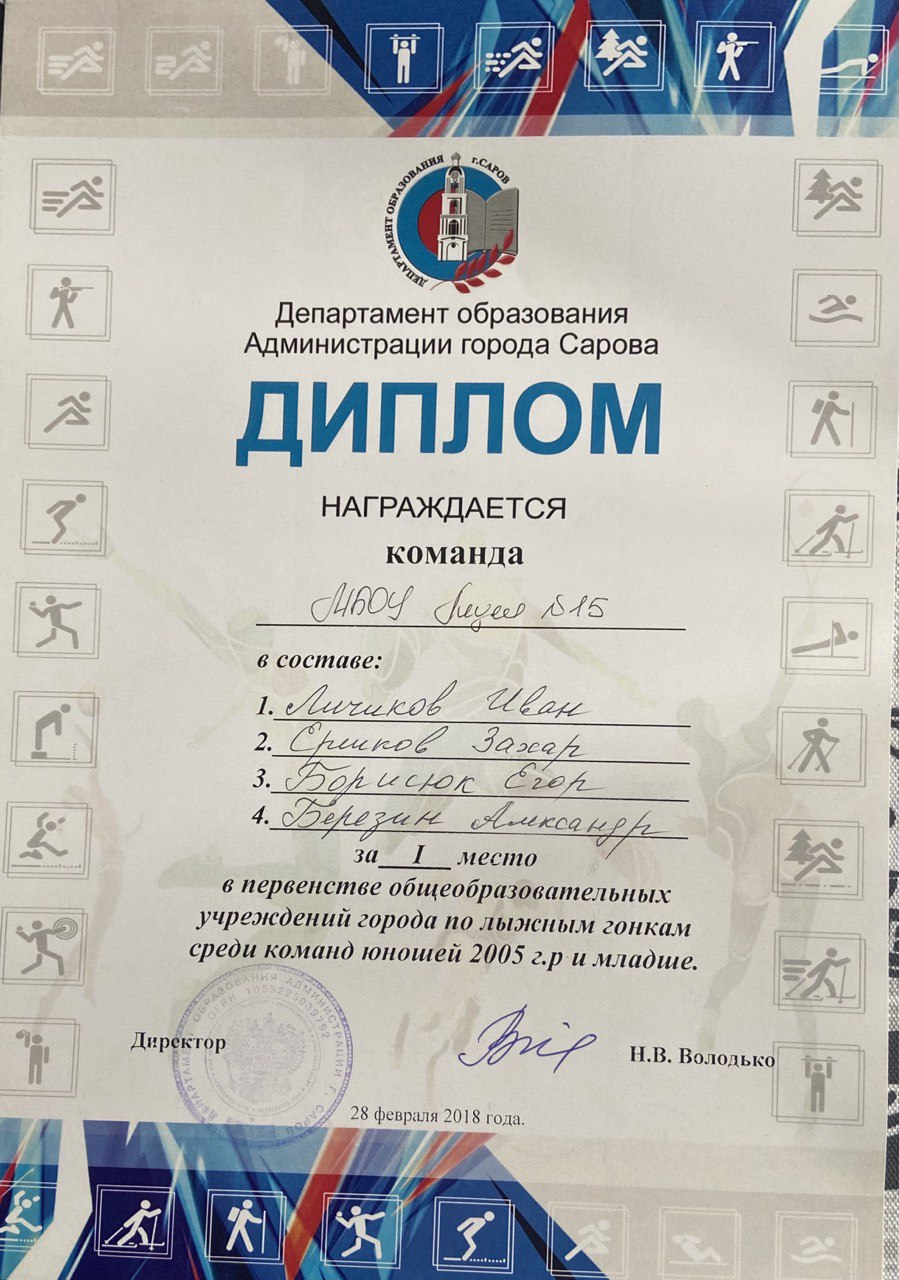 ДЕПАРТАМЕНТ ОБРАЗОВАНИЯ г.САРОВ
Департамент образования
Администрации города Сарова
ДИПЛОМ
НАГРАЖДАЕТСЯ
команда
МБОУ Лицей №15
в составе:
1. Личиков Иван
2. Ершков Захар
3. Борисюк Егор
4. Березин Александр
за I место
в первенстве общеобразовательных
учреждений города по лыжным гонкам
среди команд юношей 2005 г.р и младше.
ДЕПАРТАМЕНТ ОБРАЗОВАНИЯ АДМИНИСТРАЦИИ Г. САРОВ
ОГРН 1055225039792
Директор
Н.В. Володько
28 февраля 2018 года.